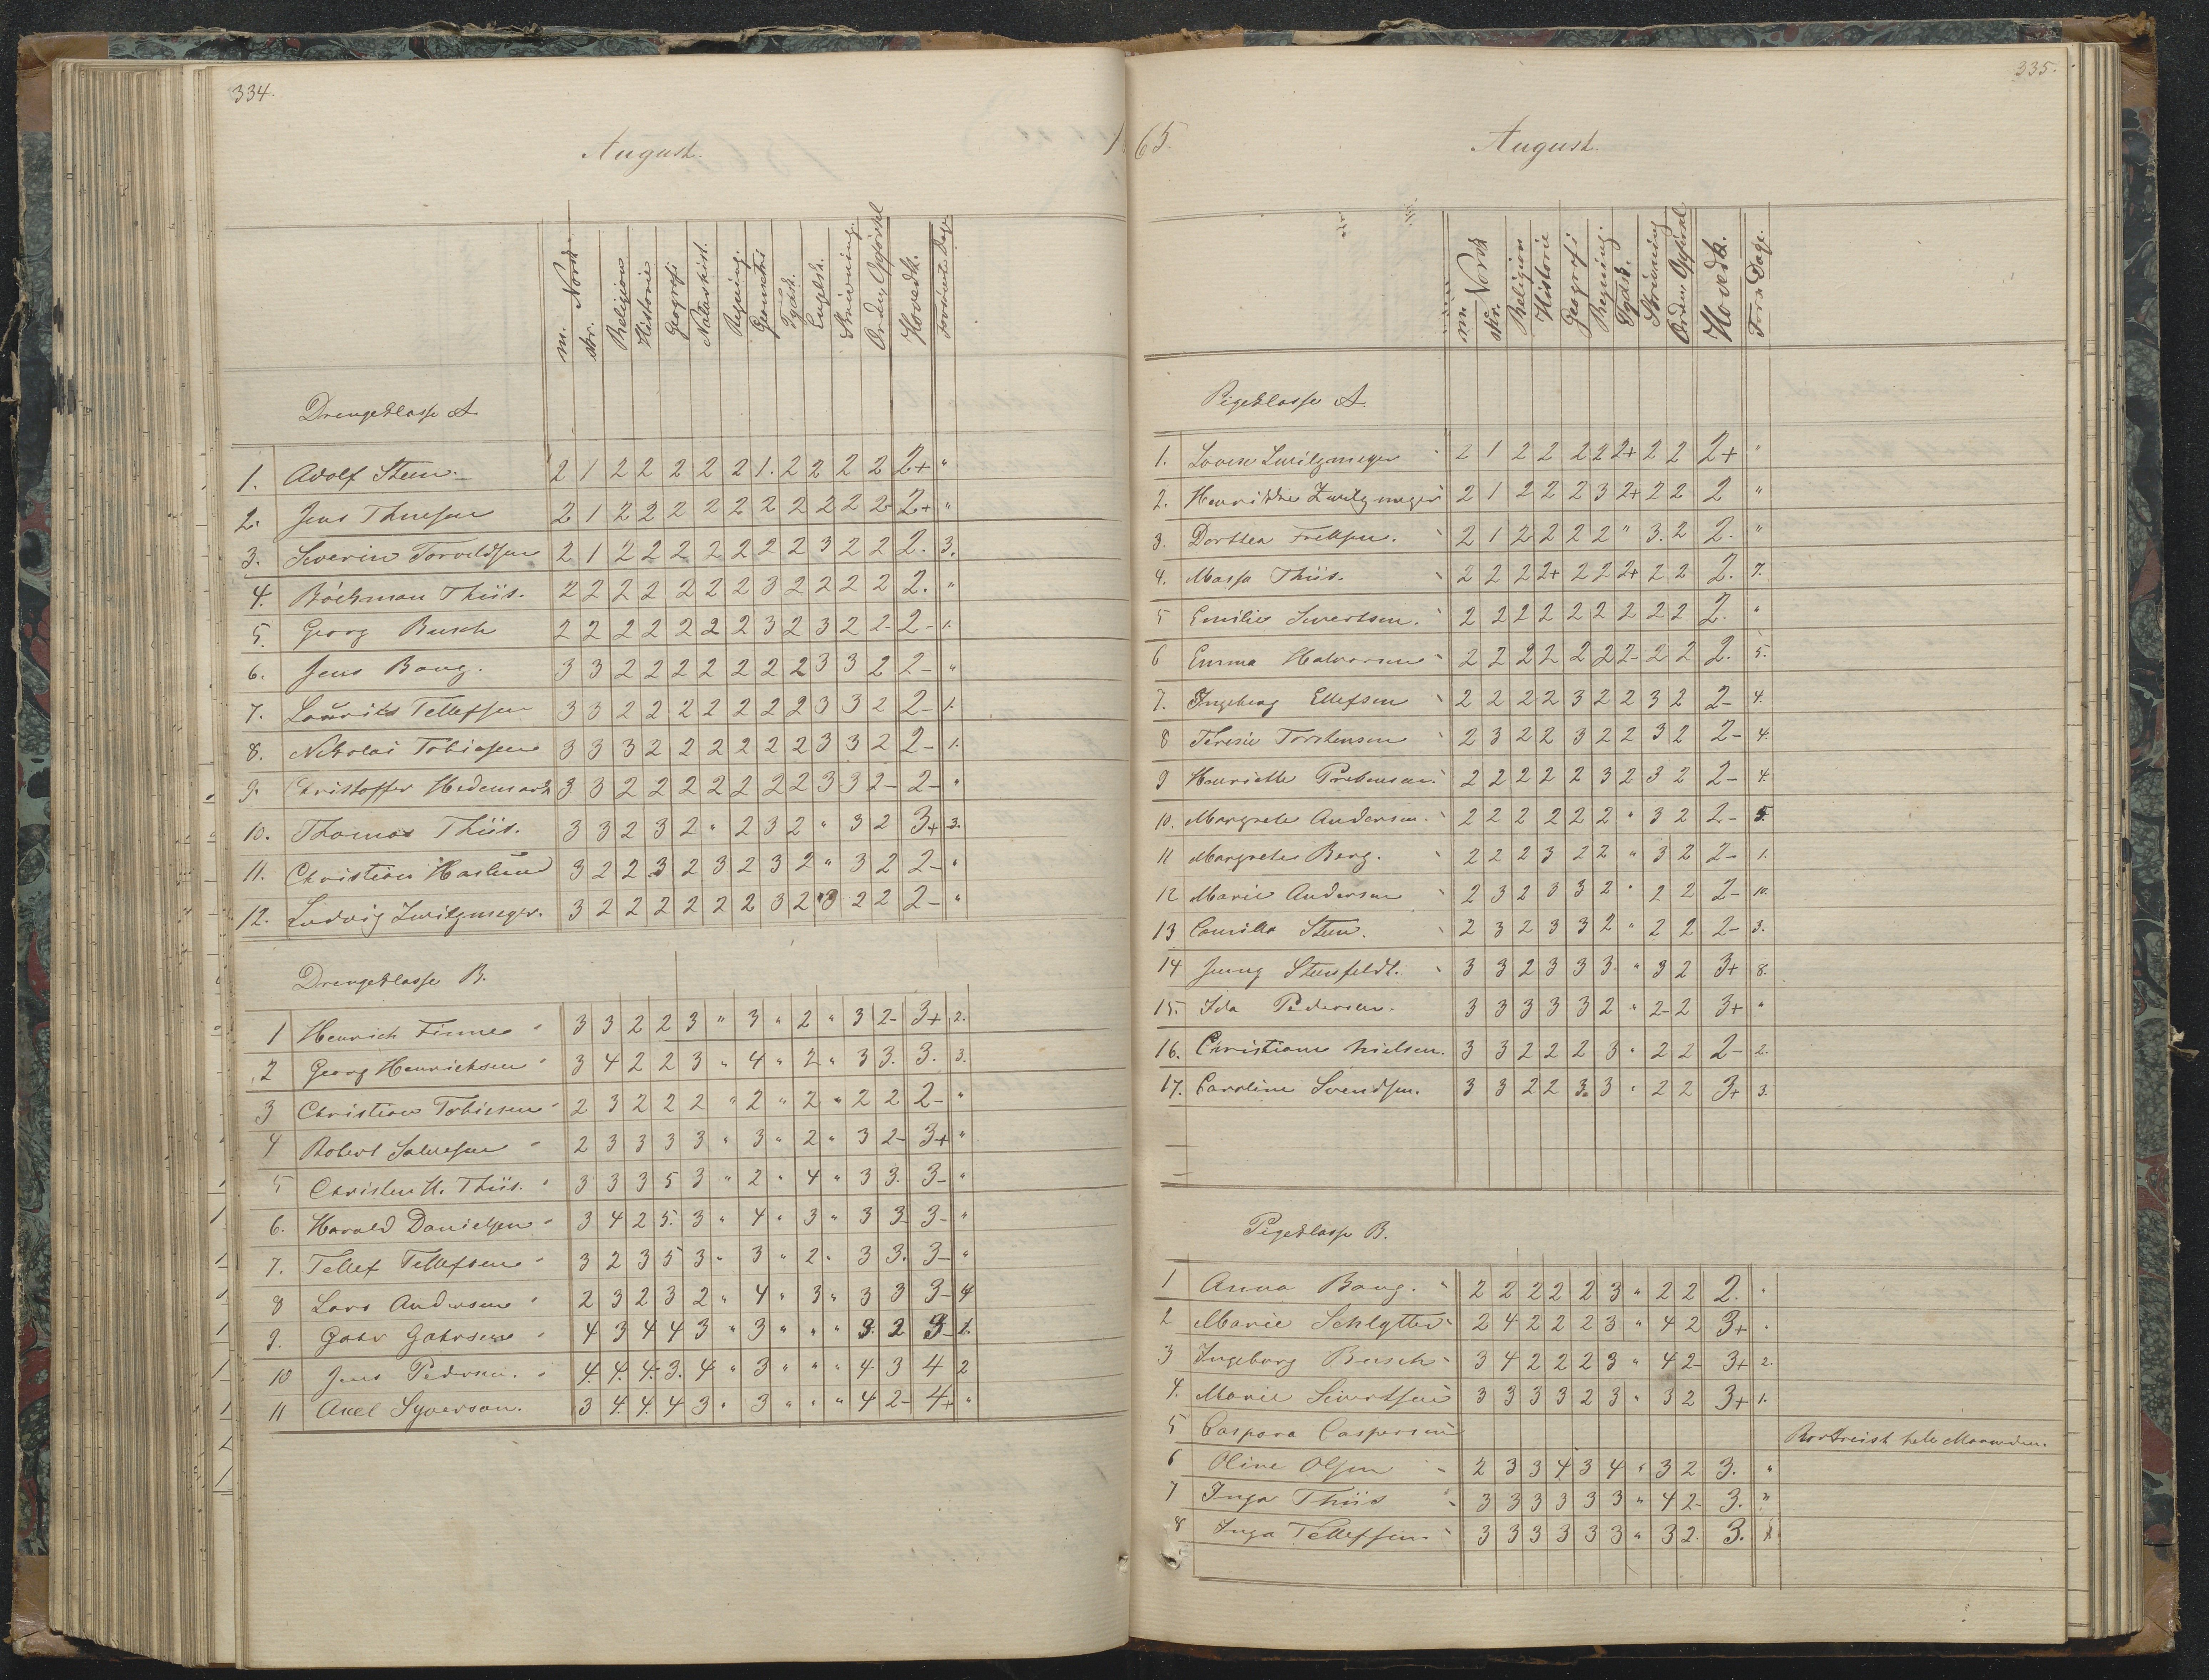 334.
August. 1
m. Norsk
skr.
Religion
Historie
Geografi
Naturhist.
Regning.
Geometri
Tydsk.
Englsk.
Skrivning.
Orden, Opførsel
Hovedk.
Forsømte Dage
Drengeklasse A
1. Adolf Steen 2 1 2 2 2 2 2 1. 2 2 2 2 2+ "
2. Jens Thuesen 2 1 2 2 2 2 2 2 2 2 2 2- 2+ "
3. Severin Torvildsen 2 1 2 2 2 2 2 2 2 3 2 2 2. 3.
4. Böckman Thiis. 2 2 2 2 2 2 2 3 2 2 2 2 2. "
5. Georg Busch 2 2 2 2 2 2 2 3 2 3 2 2- 2- 1.
6. Jens Bang. 3 3 2 2 2 2 2 2 2 3 3 2 2- "
7. Lauritz Tellefsen 3 3 2 2 2 2 2 2 2 3 3 2 2- 1.
8. Nikolai Tobiasen 3 3 3 2 2 2 2 2 2 3 3 2 2- 1.
9. Christoffer Hedemark 3 3 2 2 2 2 2 2 2 3 3 2- 2- "
10. Thomas Thiis. 3 3 2 3 2 " 2 3 2 " 3 2 3+ 3.
11. Christian Haslund 3 2 2 3 2 3 2 3 2 " 3 2 2- "
12. Ludvig Zwilgmeyer. 3 2 2 2 2 2 2 3 2 3 2 2 2- "
Drengeklasse B.
1 Henrich Finne 3 3 2 2 3 " 3 " 2 " 3 2- 3+ 2.
2 Georg Henrichsen 3 4 2 2 3 " 4 " 2 " 3 3. 3. 3.
3 Christian Tobiesen 2 3 2 2 2 " 2 " 2 " 2 2 2- "
4 Robert Salvesen 2 3 3 3 3 " 3 " 2 " 3 2- 3+ "
5 Christen H. Thiis. 3 3 3 5 3 " 2 " 4 " 3 3. 3- "
6. Harald Danielsen 3 4 2 5. 3 " 4 " 3 " 3 3- 3- "
7. Tellef Tellefsen 3 2 3 5 3 " 3 " 2 " 3 3. 3- "
8 Lars Andersen 2 3 2 3 2 " 4 " 3 " 3 3 3- 4
9. Gahr Gahrsen 4 3 4 4 3 " 3 " " " 3. 2 3- 1.
10 Jens Pedersen. 4. 4. 4. 3. 4 " 3 " " " 4 3 4 2
11 Axel Syverson. 3 4. 4. 4 3 " 3 " " " 4 2- 4+ "
335.
65. August.
m. Norsk
skr.
Religion
Historie
Geografi
Regning.
Tydsk.
Skrivning
Orden, Opførsel
Hovedk.
Fors. Dage.
Pigeklasse A.
1. Lovise Zwilgmeyer 2 1 2 2 2 2 2+ 2 2 2+ "
2. Henrikke Zwilgmeyer 2 1 2 2 2 3 2+ 2 2 2 "
3. Dorthea Frellsen. 2 1 2 2 2 2 " 3. 2 2. "
4. Massa Thiis. 2 2 2 2+ 2 2 2+ 2 2 2. 7.
5 Emilie Sivertsen. 2 2 2 2 2 2 2 2 2 2. "
6 Emma Halvorsen 2 2 2 2 2 2 2- 2 2 2. 5.
7. Ingeborg Ellefsen 2 2 2 2 3 2 2 3 2 2- 4.
8 Teresie Torstensen 2 3 2 2 3 2 2 3 2 2- 4.
9 Henriette Prebensen. 2 2 2 2 2 3 2 3 2 2- 4.
10. Margrete Andersen. 2 2 2 2 2 2 " 3 2 2- 5.
11 Margrete Berg. 2 2 2 3 2 2 " 3 2 2- 1.
12 Marie Andersen 2 3 2 3 3 2 " 2 2 2- 10.
13 Camilla Steen. 2 3 2 3 3 2 " 2 2 2- 3.
14 Jenny Stensfeldt. 3 3 2 3 3 3. " 3 2 3+ 8.
15. Ida Pedersen. 3 3 3 3 3 2 " 2- 2 3+ "
16. Christiane Nielsen. 3 3 2 2 2 3 " 2 2 2- 2.
17. Caroline Svendsen. 3 3 2 2 3. 3 " 2 2 3+ 3.
Pigeklasse B.
1 Anna Bang. 2 2 2 2 2 3 " 2 2 2. "
2 Marie Schlytter 2 4 2 2 2 3 " 4 2 3+ "
3 Ingeborg Busch 3 4 2 2 2 3 " 4 2- 3+ 2.
4. Marie Sivertsen 3 3 3 3 2 3 " 3 2 3+ 1.
5 Caspara Caspersen Bortreist hele Maaneden.
6 Oline Olsen 2 3 3 4 3 4 " 3 2 3. "
7 Inga Thiis 3 3 3 3 3 3 " 4 2- 3. "
8 Inga Tellefsen 3 3 3 3 3 3 " 3 2. 3.